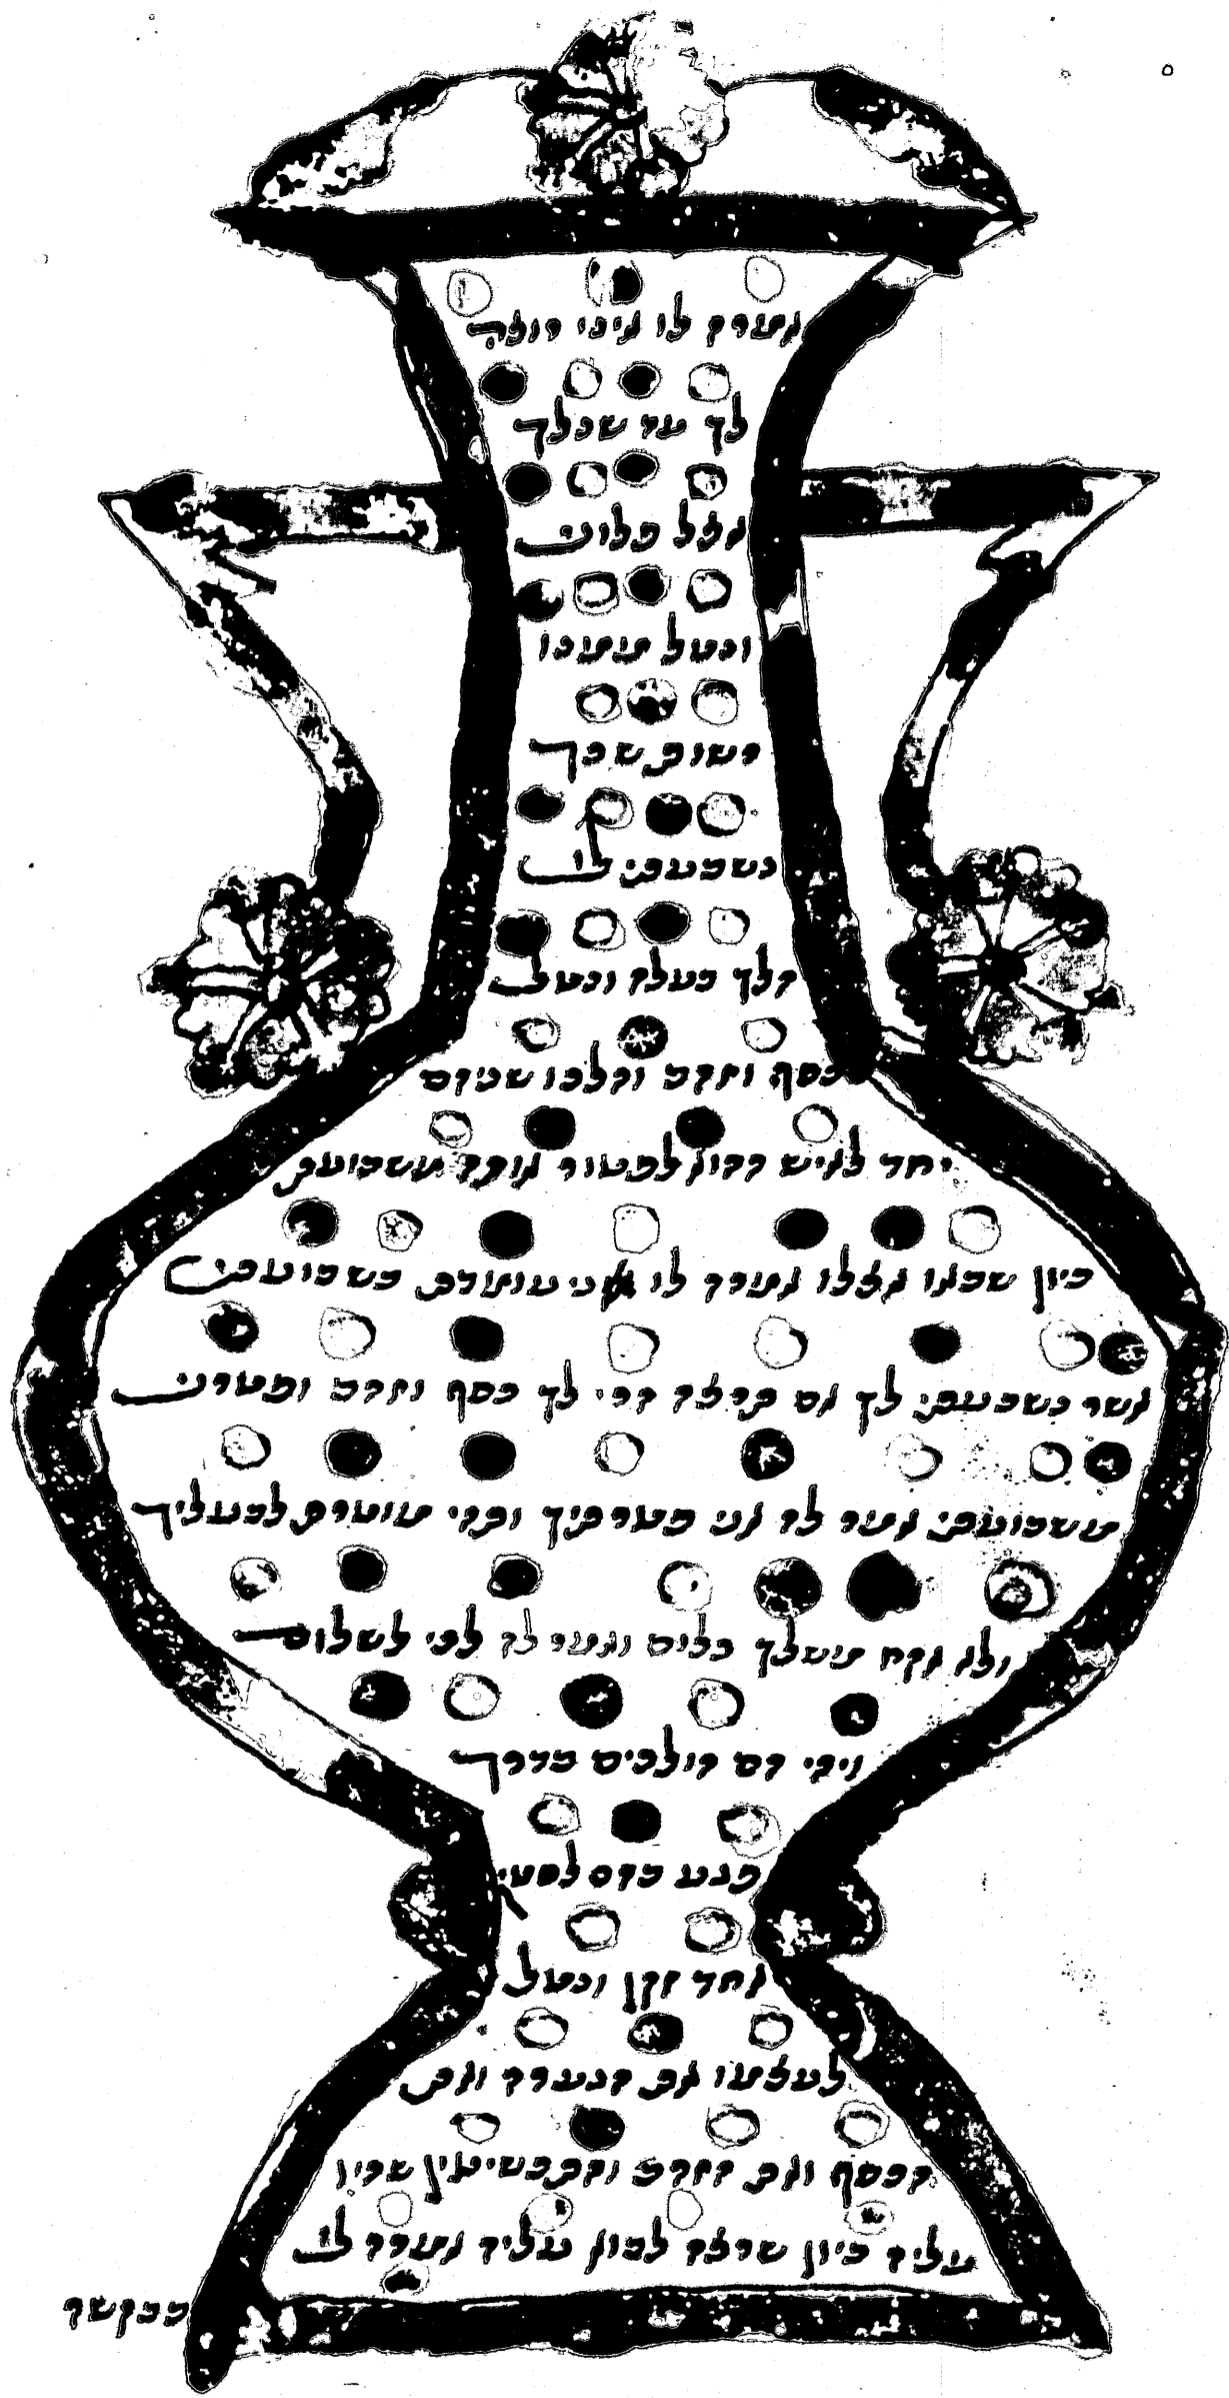 אמרה לו איני רוצה
לך עד שנלך
אצל פלוני
ונטל ממנו
רשות שכך
נשבעתי לו
הלך בעלה ונטל
כסף וזהב והלכו שניהם
יחד לאיש ההוא לפטור אותה משבועת
כיון שבאו אצלו אמרה לו אני עומדת בשבועתי
אשר נשבעתי לך אם תרצה הרי לך כסף וזהב ופטרני
משבועתי אמר לה אני פטרתיך והרי מותרת לבעליך
ולא אקח משלך כלום ואמר לה לכי לשלום
ויהי הם הולכים בדרך
פגע בהם לסטי
אחד זקן ונטל
לעצמו את הנערה ואת
הכסף ואת הזהב והתכשיטין שהיו
עליה כיון שרצה לבוא עליה אמרה לו
בבקשה